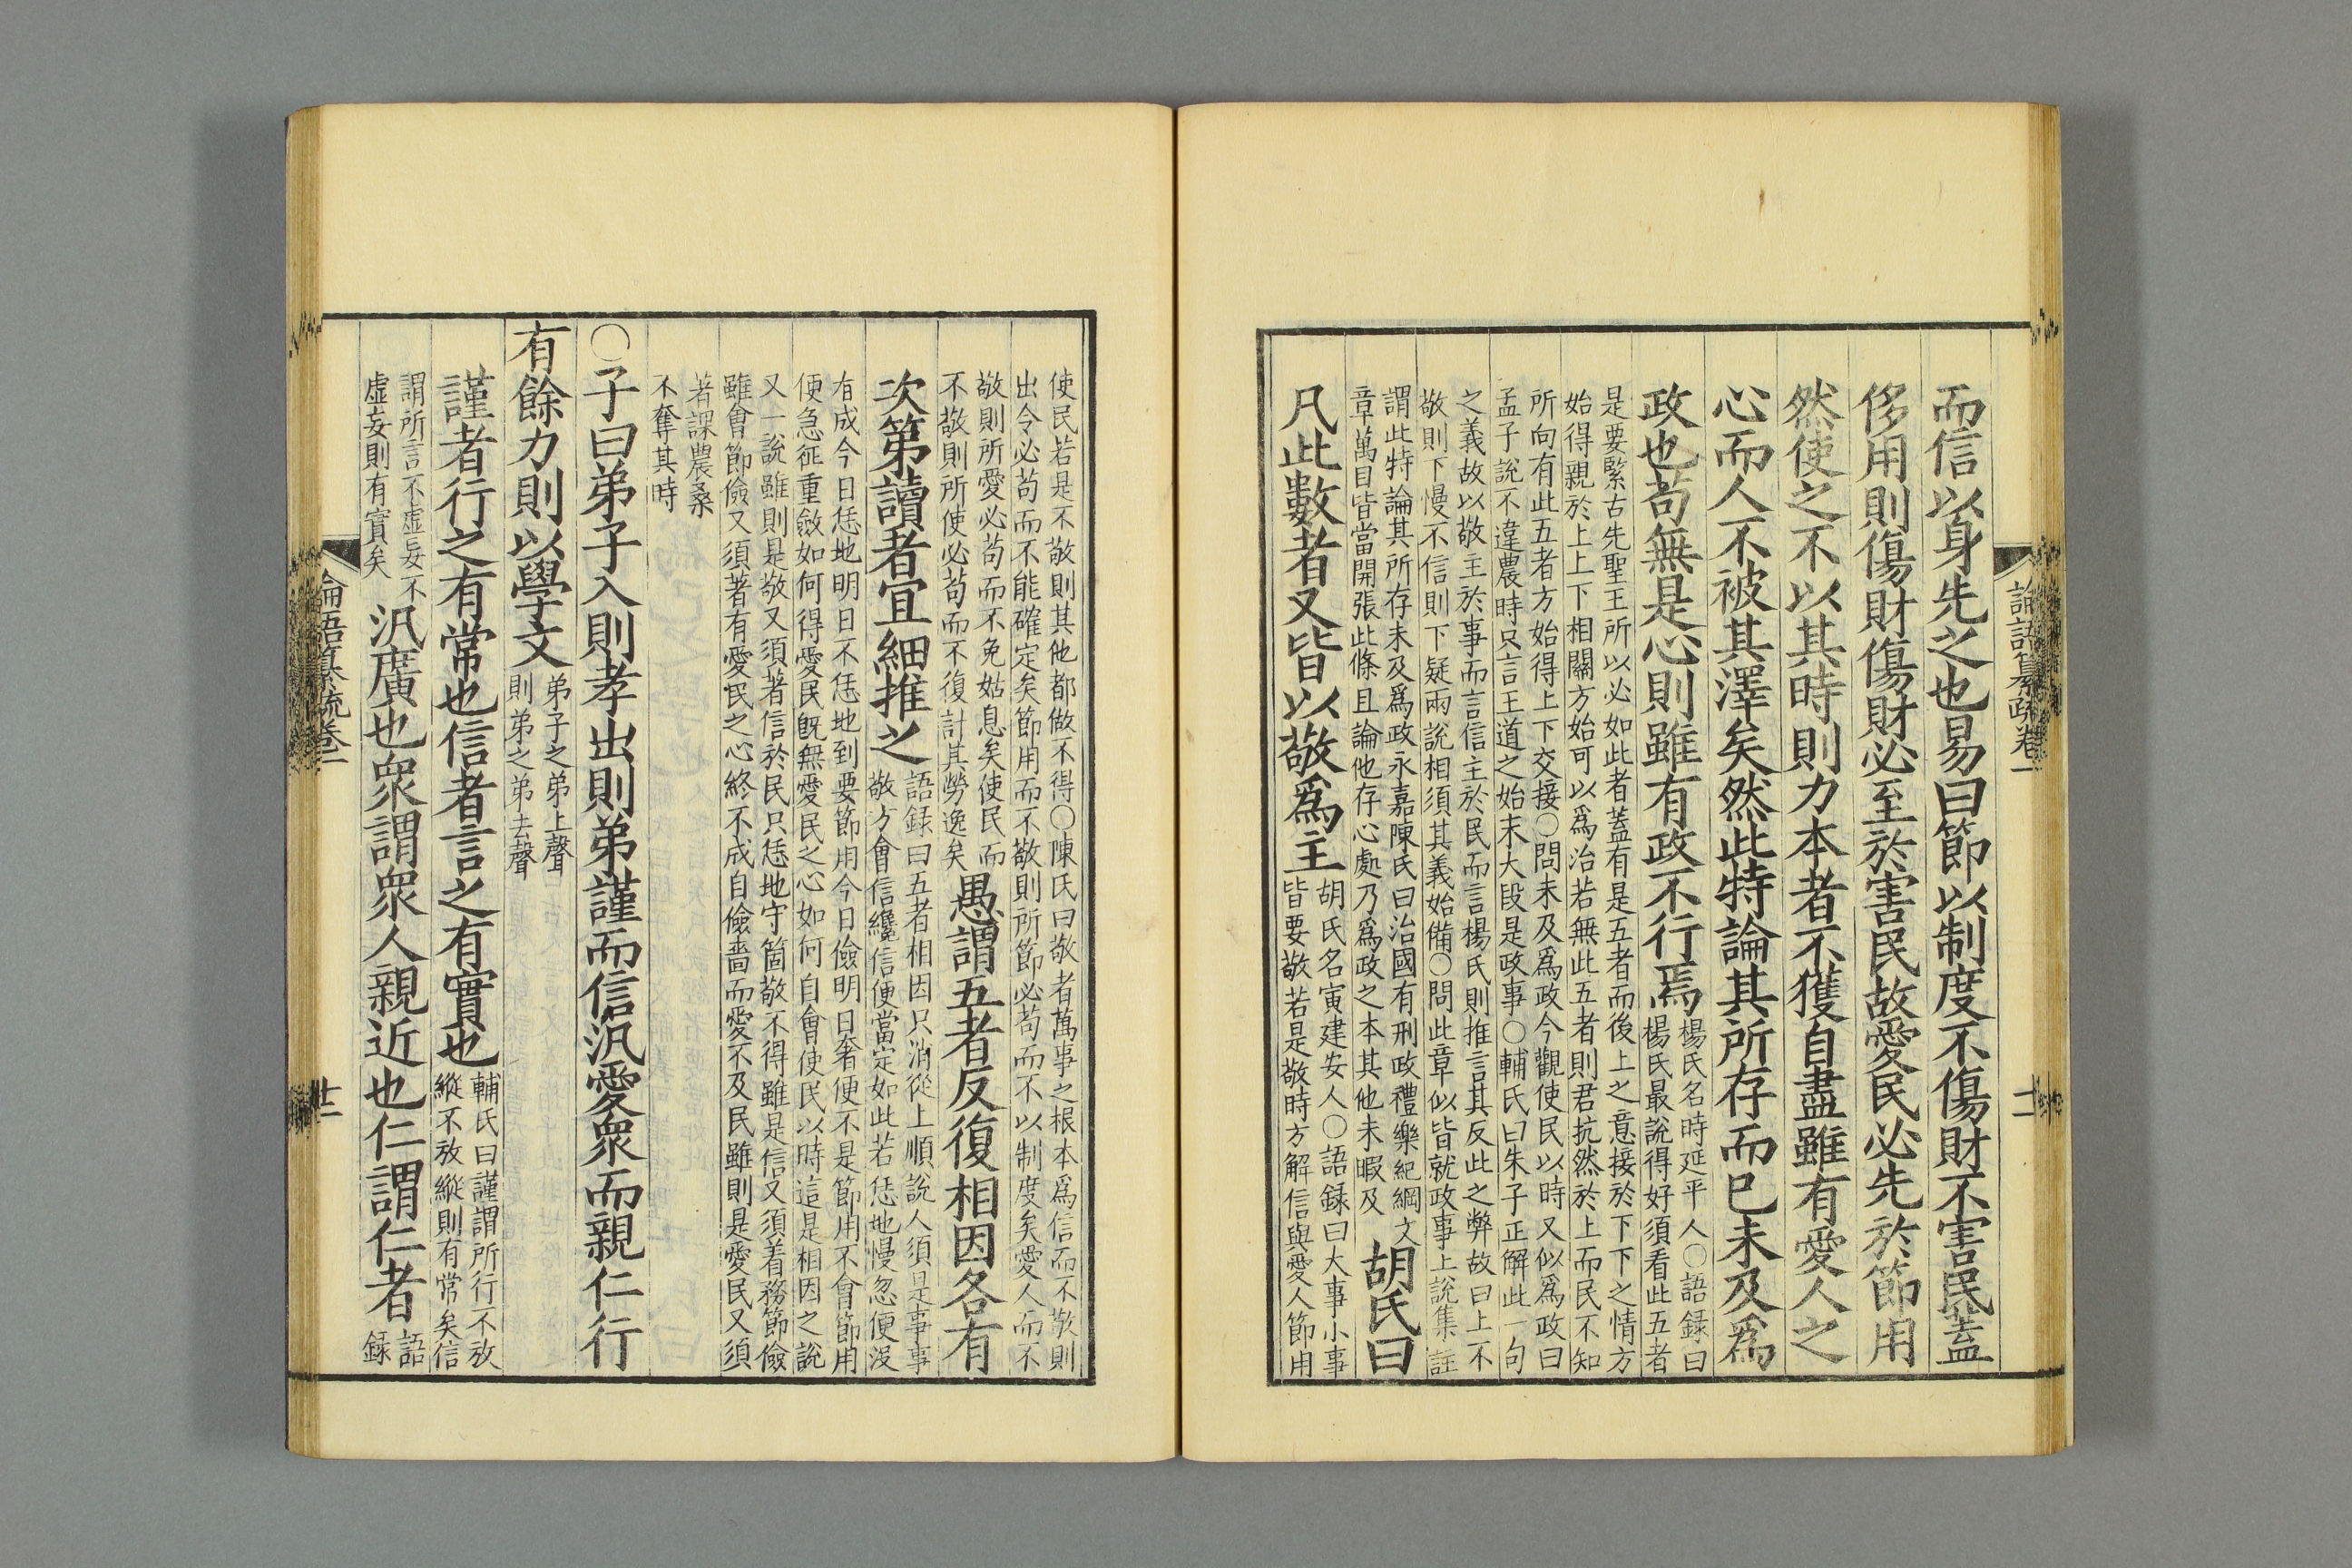 論語纂疏卷一
十二
而信以身先之也易曰節以制度不傷財不害民蓋
侈用則傷財傷財必至於害民故愛民必先於節用
然使之不以其時則力本者不獲自盡雖有愛人之
心而人不被其澤矣然此特論其所存而已未及爲
政也苟無是心則雖有政不行焉
楊氏名時延平人○語録曰
楊氏最說得好須看此五者
是要緊古先聖王所以必如此者蓋有是五者而後上之意接於下下之情方
始得親於上上下相關方始可以爲治若無此五者則君抗然於上而民不知
所向有此五者方始得上下交接○問未及爲政今觀使民以時又似爲政曰
孟子說不違農時只言王道之始未大段是政事○輔氏曰朱子正解此一句
之義故以敬主於事而言信主於民而言楊氏則推言其反此之弊故曰上不
敬則下慢不信則下疑兩說相須其義始備○問此章似皆就政事上說集註
謂此特論其所存未及爲政永嘉陳氏曰治國有刑政禮樂紀綱文
章萬目皆當開張此條且論他存心處乃爲政之本其他未暇及
胡氏曰
凡此數者又皆以敬爲主
胡氏名寅建安人○語録曰大事小事
皆要敬若是敬時方解信與愛人節用
使民若是不敬則其他都做不得○陳氏曰敬者萬事之根本爲信而不敬則
出令必苟而不能確定矣節用而不敬則所節必苟而不以制度矣愛人而不
敬則所愛必苟而不免姑息矣使民而
不敬則所使必苟而不復計其勞逸矣
愚謂五者反復相因各有
次第讀者宜細推之
語録曰五者相因只消從上順說人須是事事
敬方會信纔信便當定如此若恁地慢忽便沒
有成今日恁地明日不恁地到要節用今日儉明日奢便不是節用不會節用
便急征重斂如何得愛民旣無愛民之心如何自會使民以時這是相因之說
又一說雖則是敬又須著信於民只恁地守箇敬不得雖是信又須着務節儉
雖會節儉又須著有愛民之心終不成自儉嗇而愛不及民雖則是愛民又須
著課農桑
不奪其時
○子曰弟子入則孝出則弟謹而信汎愛衆而親仁行
有餘力則以學文
弟子之弟上聲
則弟之弟去聲
謹者行之有常也信者言之有實也
輔氏曰謹謂所行不放
縱不放縱則有常矣信
謂所言不虛妄不
虛妄則有實矣
汎廣也衆謂衆人親近也仁謂仁者
語
録
論語纂疏卷一
十三